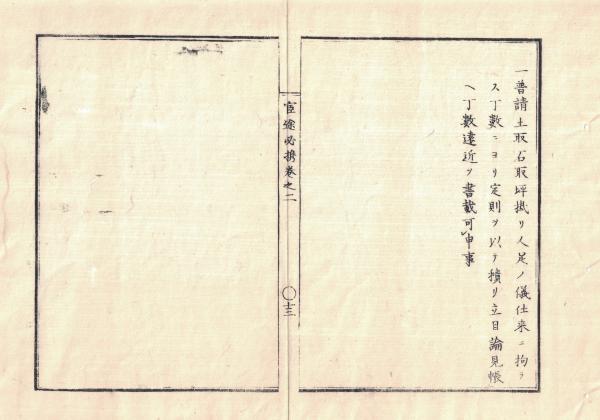 一普請土取石取坪掘リ人足ノ儀仕来ニ拘ラ
ス丁數ニヨリ定則ヲ以テ積リ立目論見帳
ヘ丁數遠近ヲ書載可申事
官途必携卷之二
〇十三